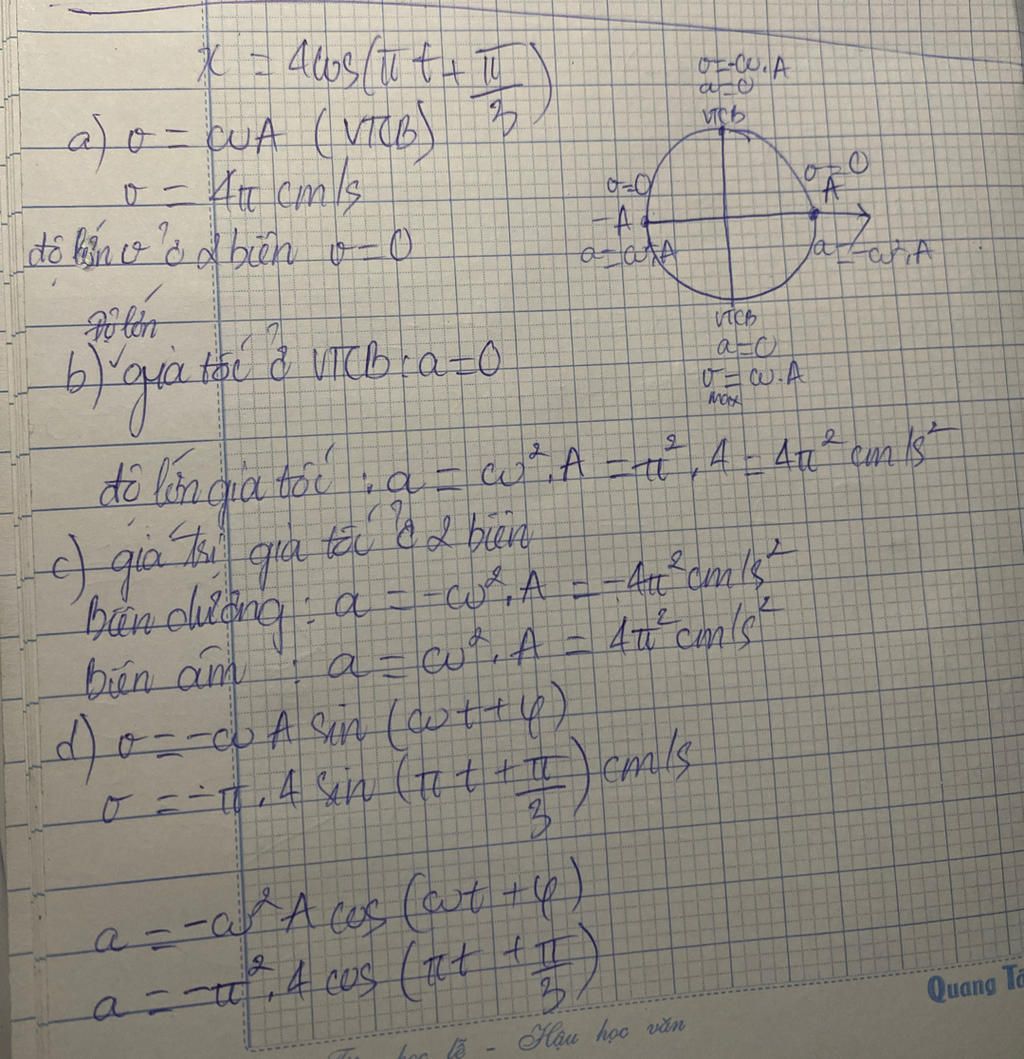 x = 4cos(πt + π/3)
a) v = ωA (VTCB)
v = 4π cm/s
độ lớn v ở 2 biên v = 0
Độ lớn
b) gia tốc ở VTCB : a = 0
độ lớn gia tốc : a = ω².A = π².4 = 4π² cm/s²
c) giá trị gia tốc ở 2 biên
biên dương : a = -ω².A = -4π² cm/s²
biên âm : a = ω².A = 4π² cm/s²
d) v = -ωA sin (ωt + φ)
v = -π.4 sin (πt + π/3) cm/s
a = -ω²A cos (ωt + φ)
a = -π².4 cos (πt + π/3)
v = -ω.A
a = 0
VTCB
v = 0
-A
a = ω².A
v = 0
A
a = -ω².A
VTCB
a = 0
v max = ω.A
học lễ - Hậu học văn
Quang